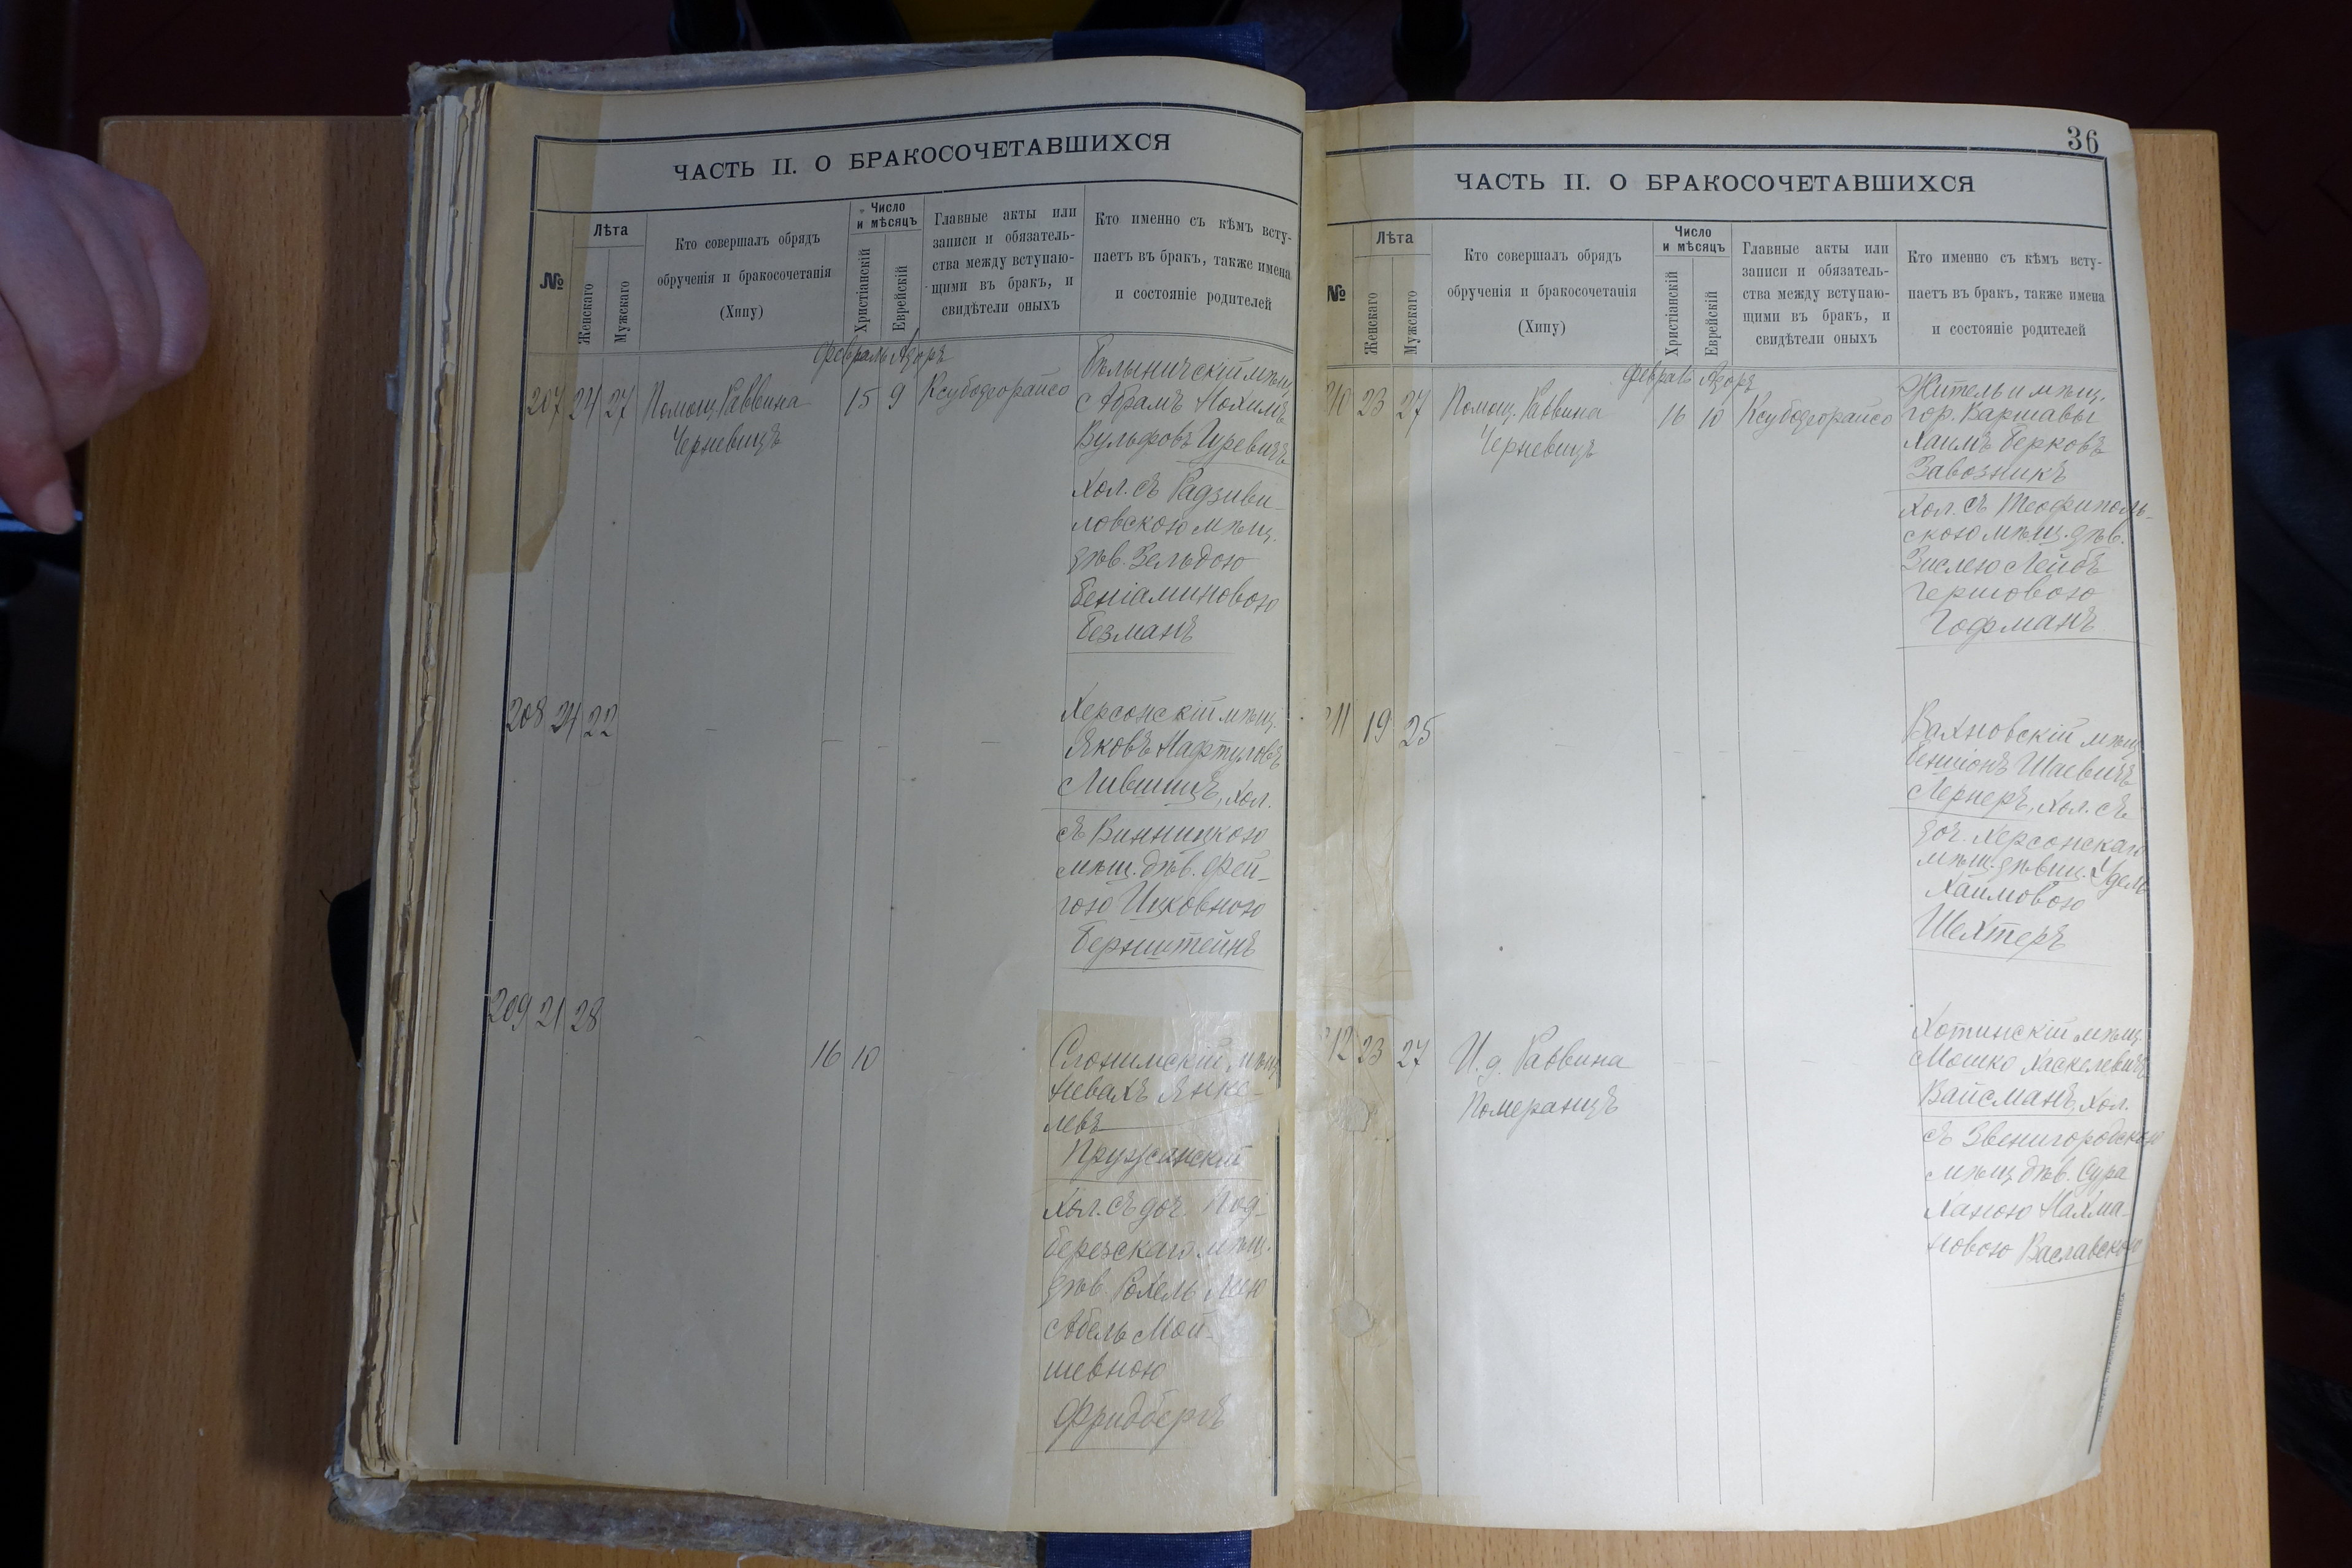 ЧАСТЬ II. О БРАКОСОЧЕТАВШИХСЯ
№
Лѣта
Женскаго
Мужскаго
Кто совершалъ обрядъ
обрученія и бракосочетанія
(Хипу)
Число
и мѣсяцъ
Христіанскій
Еврейскій
Главные акты или
записи и обязатель-
ства между вступаю-
щими въ бракъ, и
свидѣтели оныхъ
Кто именно съ кѣмъ всту-
паетъ въ бракъ, также имена
и состояніе родителей
Февраль Адоръ
207 24 27 Помощ. Раввина 15 9 Ксубодеорайсо
Черневицъ
Бѣлыничскій мѣщ.
Абрамъ Нохимъ
Вульфовъ Гуревичъ
Хол. съ Радзиви-
ловскою мѣщ.
дѣв. Зельдою
Беніаминовою
Безманъ
208 24 22 - - - -
Херсонскій мѣщ.
Яковъ Нафтуловъ
Лившицъ, хол.
съ Винницкою
мѣщ. дѣв. Фей-
гою Ицковною
Бернштейнъ
209 21 28 -
16 10
Слонимскій мѣщ.
Невахъ Янке-
левъ
Пружанскій
Хол. съ доч. Под-
березскаго мѣщ.
дѣв. Рохель Лею
Абель Мой-
шевною
Фридбергъ
36
ЧАСТЬ II. О БРАКОСОЧЕТАВШИХСЯ
№
Лѣта
Женскаго
Мужскаго
Кто совершалъ обрядъ
обрученія и бракосочетанія
(Хипу)
Число
и мѣсяцъ
Христіанскій
Еврейскій
Главные акты или
записи и обязатель-
ства между вступаю-
щими въ бракъ, и
свидѣтели оныхъ
Кто именно съ кѣмъ всту-
паетъ въ бракъ, также имена
и состояніе родителей
Февраль Адоръ
210 23 27 Помощ. Раввина 16 10 Ксубодеорайсо
Черневицъ
Житель и мѣщ.
гор. Варшавы
Хаимъ Берковъ
Завозникъ
Хол. съ Теофиполь-
скою мѣщ. дѣв.
Зислею Лейбъ
Гершовою
Гофманъ
211 19 25 - - - -
Вахновскій мѣщ.
Бенціонъ Шаевичъ
Лернеръ, хол. съ
доч. Херсонскаго
мѣщ. дѣвиц. Удель
Хаимовою
Шехтеръ
212 23 27 И. д. Раввина - - -
Померанцъ
Хотинскій мѣщ.
Мошко Хаскелевичъ
Вайсманъ, хол.
съ Звенигородскою
мѣщ. дѣв. Сура
Ханою Нахма-
новою Ваславскою